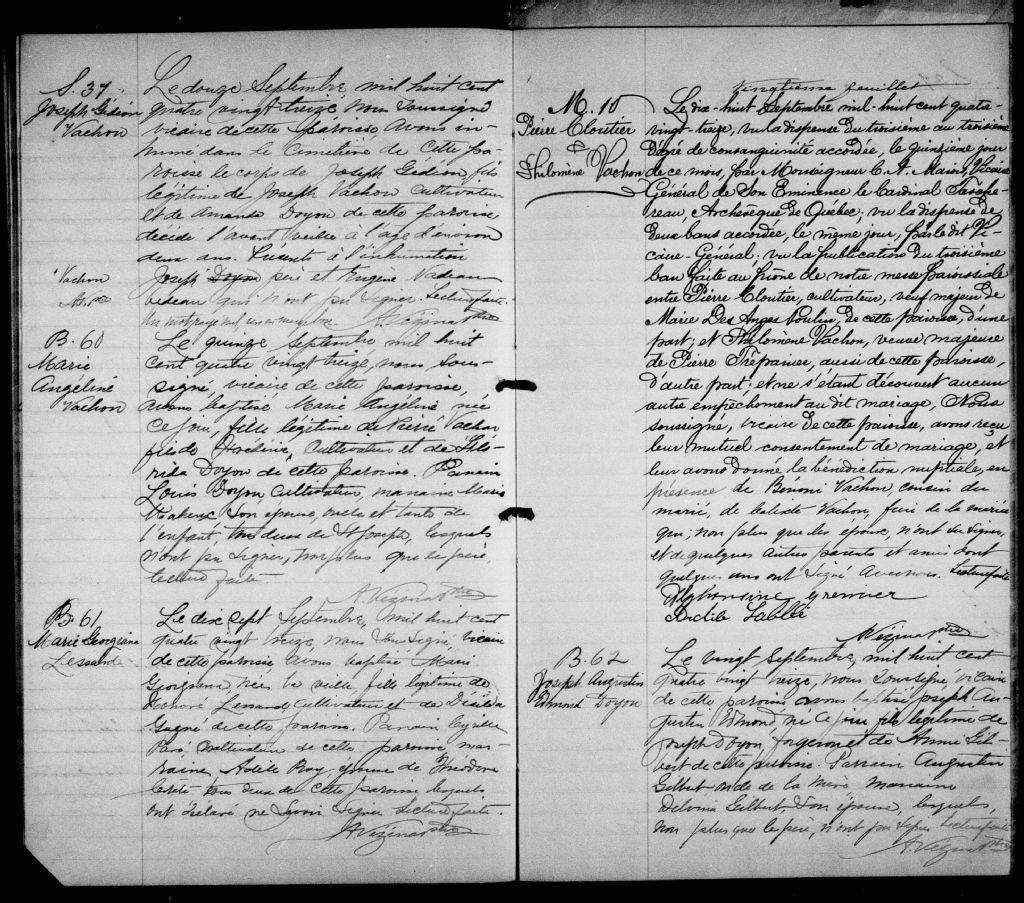 S. 37
Joseph Gédéon
Vachon
Le douze Septembre, mil huit cent
quatre vingt treize, nous soussigné
vicaire de cette paroisse avons in-
humé dans le cimetière de cette pa-
roisse le corps de Joseph Gédéon fils
légitime de Joseph Vachon cultivateur
et de Amanda Doyon de cette paroisse
décédé l'avant veille à l'age d'environ
deux ans. Présents à l'inhumation
Vachon
Joseph Doyon père et Eugène Nadeau
bedeau qui n'ont pu signer. Lecture faite.
Un mot rayé nul
A. Vézina Ptre
B. 60
Marie
Angéline
Vachon
Le quinze septembre mil huit
cent quatre vingt treize, nous sous-
signé, vicaire de cette paroisse,
avons baptisé Marie Angéline née
ce jour, fille légitime de Pierre Vachon
fils de cultivateur et de
Doyon de cette paroisse. Parrain
Louis Doyon cultivateur, marraine Marie
Maheux son épouse, oncle et tante de
l'enfant, tous deux de St Joseph, lesquels
n'ont pu signer, non plus que le père,
lecture faite
A. Vézina Ptre
B. 61
Marie Georgiana
Lessard
Le dix sept Septembre, mil huit cent
quatre vingt treize, nous soussigné, vicaire
de cette paroisse, avons baptisé Marie
Georgiana, née la veille, fille légitime de
Honoré Lessard cultivateur et de
Gagné de cette paroisse. Parrain Cyrille
Paré cultivateur de cette paroisse mar-
raine, Adèle Roy, épouse de Théodore
tous deux de cette paroisse lesquels,
ont déclaré ne savoir signer. Lecture faite.
A. Vézina Ptre
Vingtième feuillet
M. 10
Pierre Cloutier
&
Philomène Vachon
Le dix-huit Septembre mil-huit cent quatre-
vingt-treize, vu la dispense du troisième au troisième
degré de consanguinité accordée, le quinzième jour
de ce mois, par Monseigneur C. A. Marois, Vicaire
Général de Son Eminence le Cardinal Tasche-
reau, Archevêque de Québec; vu la dispense de
deux bans accordée, le même jour, par le dit Vi-
caire-Général; vu la publication du troisième
ban faite au prône de notre messe paroissiale
entre Pierre Cloutier, cultivateur, veuf majeur de
Marie Des Anges Poulin, de cette paroisse, d'une
part; et Philomène Vachon, veuve majeure
de Pierre Trépanier, aussi de cette paroisse,
d'autre part; et ne s'étant découvert aucun
autre empêchement au dit mariage, Nous
soussigné, vicaire de cette paroisse, avons reçu
leur mutuel consentement de mariage, et
leur avons donné la bénédiction nuptiale, en
présence de Bénoni Vachon, cousin du
marié, de Calixte Vachon, frère de la mariée
qui, non plus que les époux, n'ont su signer,
et de quelques autres parents et amis dont
quelques uns ont signé avec nous. Lecture faite
Alphonsine Grenier
A. Vézina Ptre
B. 62
Joseph Augustin
Edmond Doyon
Le vingt Septembre, mil huit cent
quatre vingt treize, nous soussigné vicaire
de cette paroisse avons baptisé Joseph Au-
gustin Edmond né ce jour fils légitime de
Joseph Doyon, forgeron et de Annie Gil-
bert de cette paroisse. Parrain Augustin
Gilbert oncle de la mère marraine
Delvina Gilbert son épouse, lesquels,
non plus que le père, n'ont pu signer. Lecture faite
A. Vézina Ptre